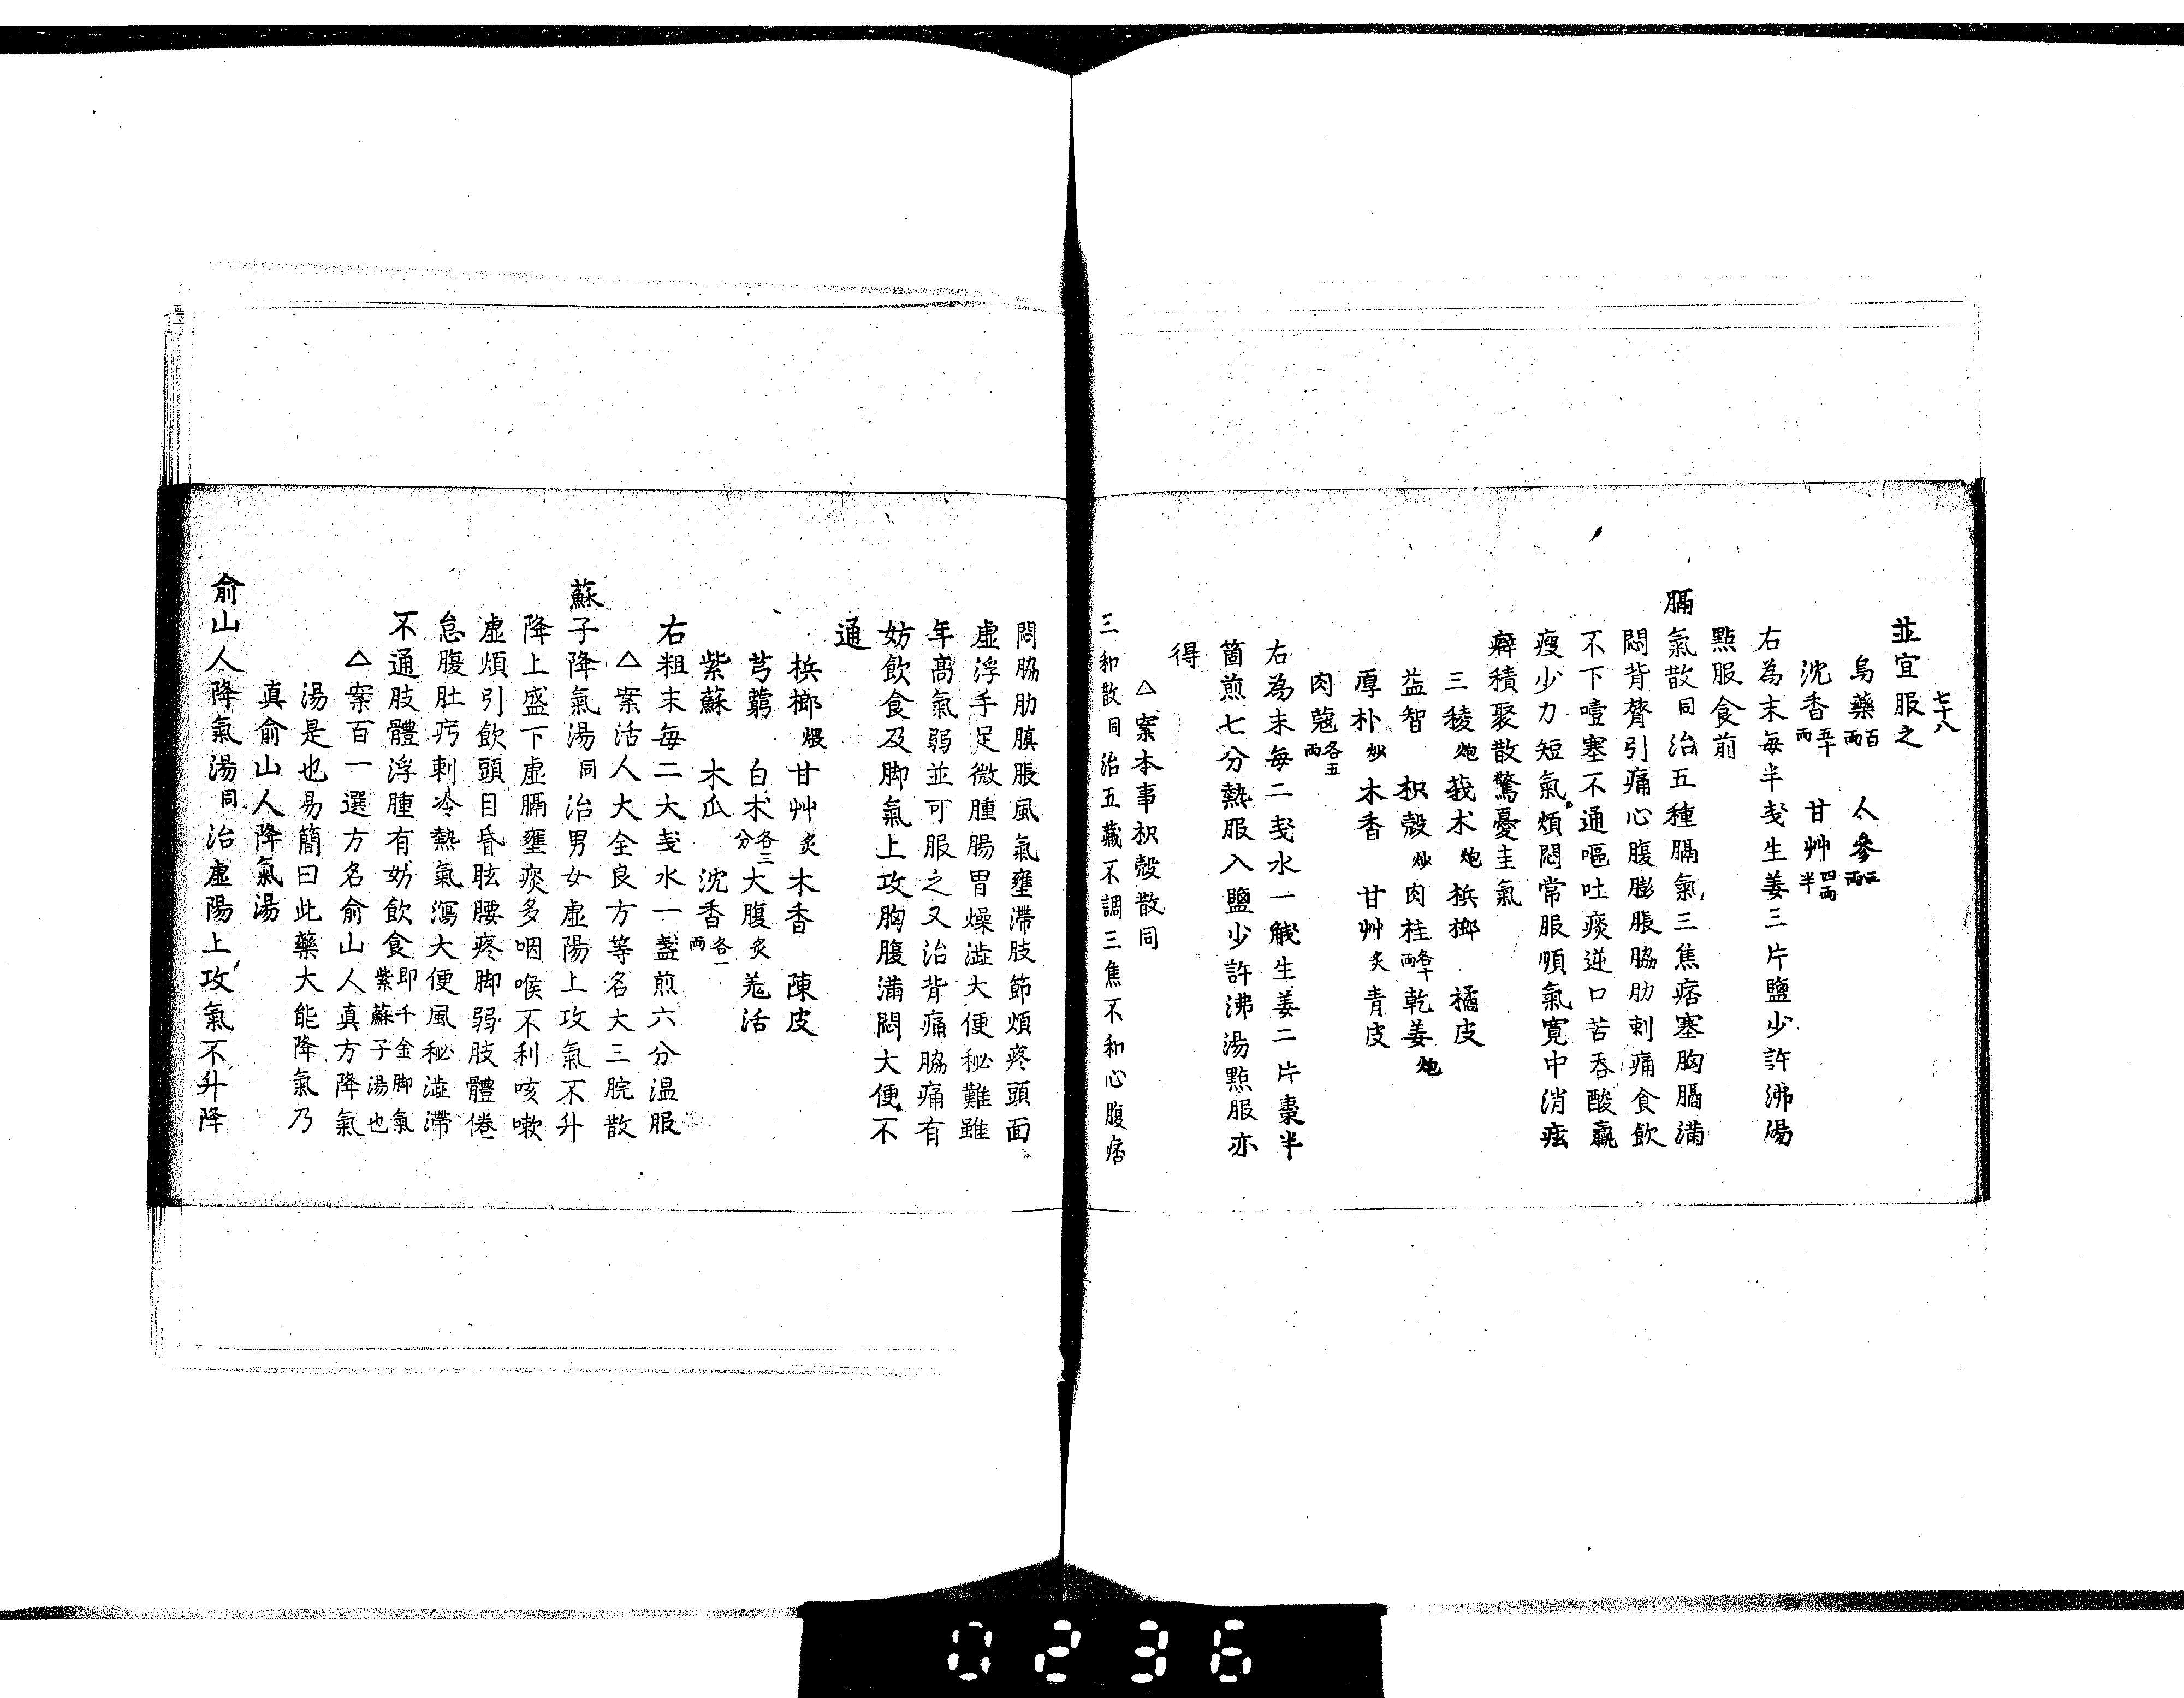 七十八
並宜服之
烏藥百兩 人參三兩
沈香五十兩 甘艸四兩半
右為末每半戔生姜三片鹽少許沸湯
點服食前
膈氣散同治五種膈氣三焦痞塞胸膈滿
悶背膂引痛心腹膨脹脇肋刺痛食飲
不下噎塞不通嘔吐痰逆口苦吞酸羸
瘦少力短氣煩悶常服順氣寬中消痃
癖積聚散驚憂恚氣
三稜炮 莪朮炮 梹榔 橘皮
益智 枳殼炒 肉桂各十兩 乾姜炮
厚朴炒 木香 甘艸炙 青皮
肉蔻各五兩
右為末每二戔水一醆生姜二片棗半
箇煎七分熱服入鹽少許沸湯點服亦
得
△案本事枳殼散同
三和散同治五藏不調三焦不和心腹痞
悶脇肋䐜脹風氣壅滯肢節煩疼頭面
虛浮手足微腫腸胃燥澁大便秘難雖
年高氣弱並可服之又治背痛脇痛有
妨飲食及脚氣上攻胸腹滿悶大便不
通
梹榔煨 甘艸炙 木香 陳皮
芎藭 白朮各三分 大腹炙 羗活
紫蘇 木瓜 沈香各一兩
右粗末每二大戔水一盞煎六分温服
△案活人大全良方等名大三脘散
蘇子降氣湯同治男女虛陽上攻氣不升
降上盛下虛膈壅痰多咽喉不利咳嗽
虛煩引飲頭目昏眩腰疼脚弱肢體倦
怠腹肚㽱刺冷熱氣瀉大便風秘澁滯
不通肢體浮腫有妨飲食即千金脚氣紫蘇子湯也
△案百一選方名俞山人真方降氣
湯是也易簡曰此藥大能降氣乃
真俞山人降氣湯
俞山人降氣湯同治虛陽上攻氣不升降
0236